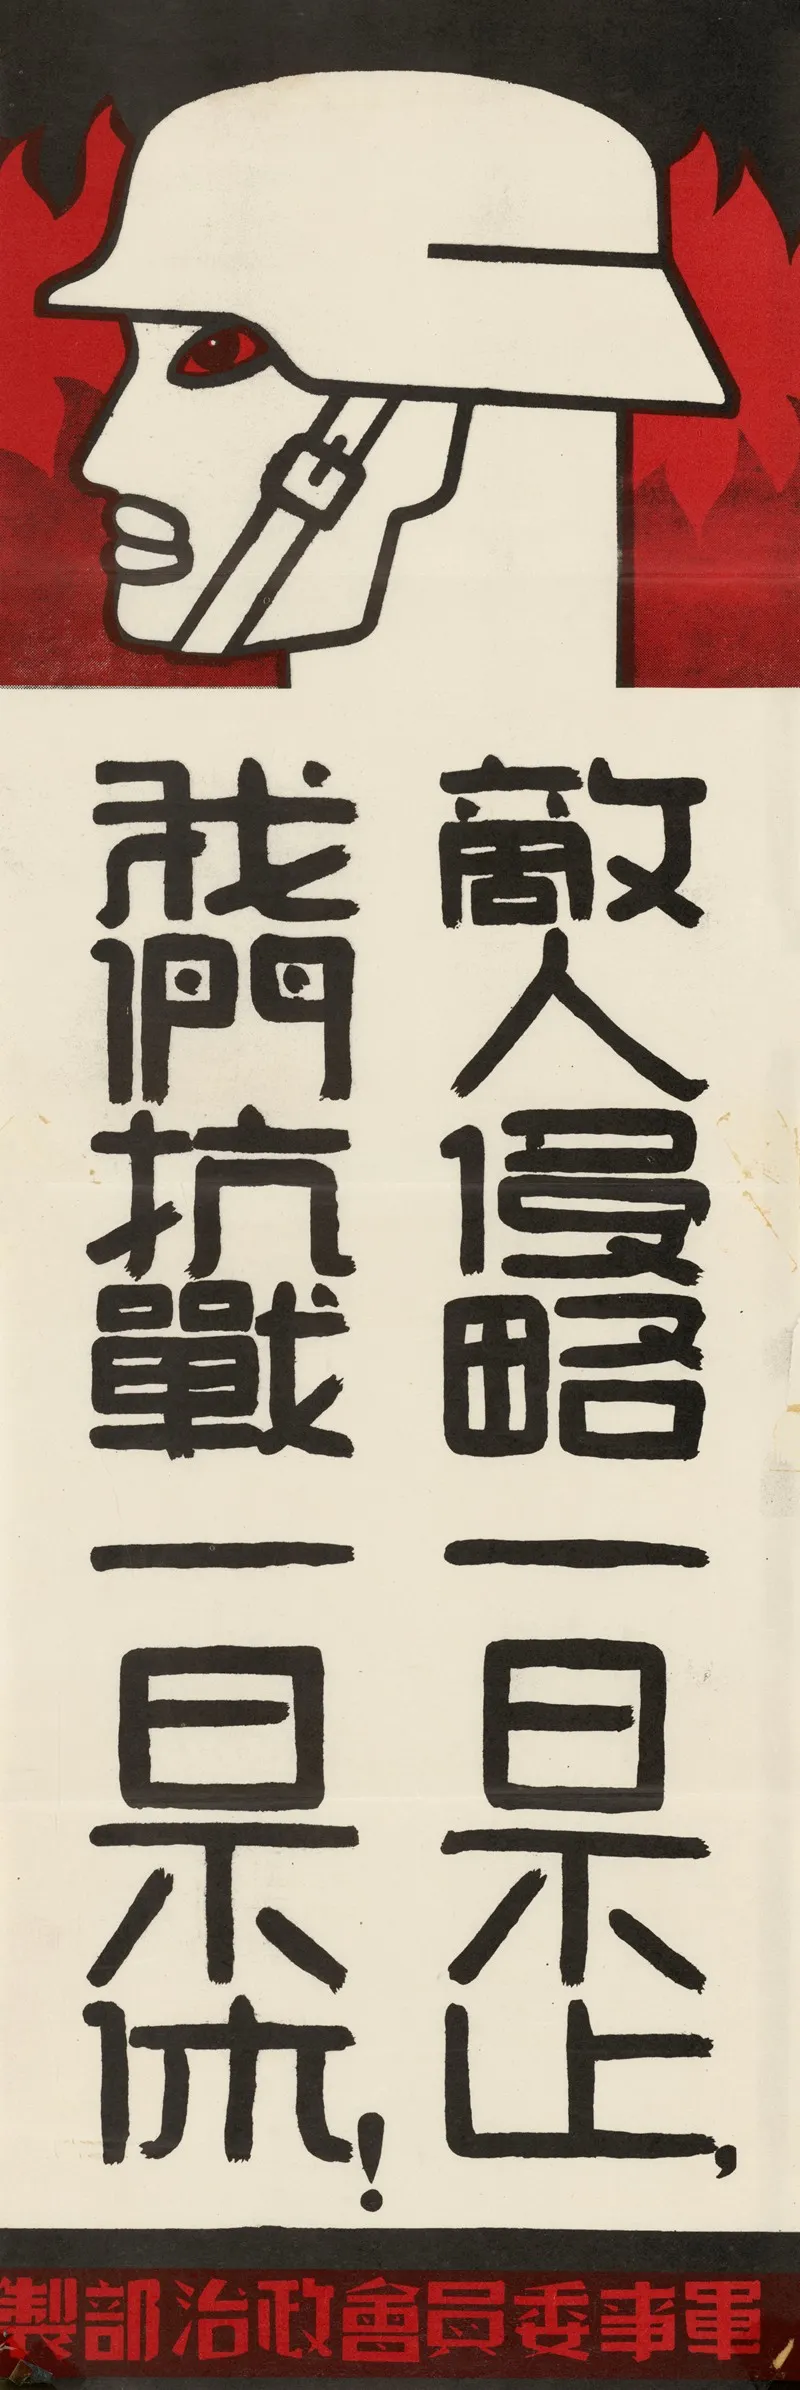 敵人侵略一日不止,
我們抗戰一日不休!
軍事委員會政治部製